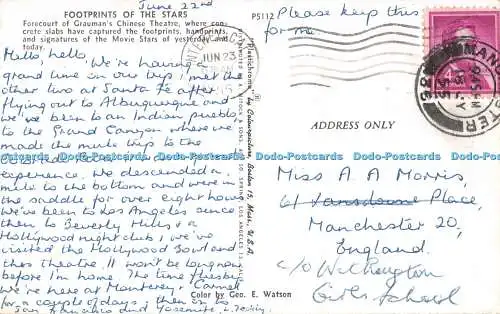 June 22nd
FOOTPRINTS OF THE STARS
Forecourt of Grauman's Chinese Theatre, where con-
crete slabs have captured the footprints, handprints,
and signatures of the Movie Stars of yesterday and
today.
P5112
Please keep this
for me
Hello, hello,
We're having a
grand time on our trip, I met the
other two at Santa Fe after
flying out to Albuquerque and
we've been to an Indian pueblo,
to the Grand Canyon where we
made the mule trip to the
experience. We descended a
mile to the bottom and were in
the saddle for over eight hours.
We've been to Los Angeles since
then to Beverly Hills & a
Hollywood night club; we've
visited the Hollywood Bowl and
this Theatre. It won't be long now
before I'm home. The time flies by
We're here at Monterey & Carmel
for a couple of days; then on to
San Francisco and Yosemite.
Color by Geo. E. Watson
"Plastichrome" ® by Colourpicture, Boston 15, Mass., U.S.A.
JUN 23
ADDRESS ONLY
Miss A A Morris,
61 Lansdowne Place,
Manchester 20,
England.
c/o Withington
Girls School
Dodo-Postcards Dodo-Postcards Dodo-Postcards Dodo-Postcards Dodo-Postcards Dodo-Postcards